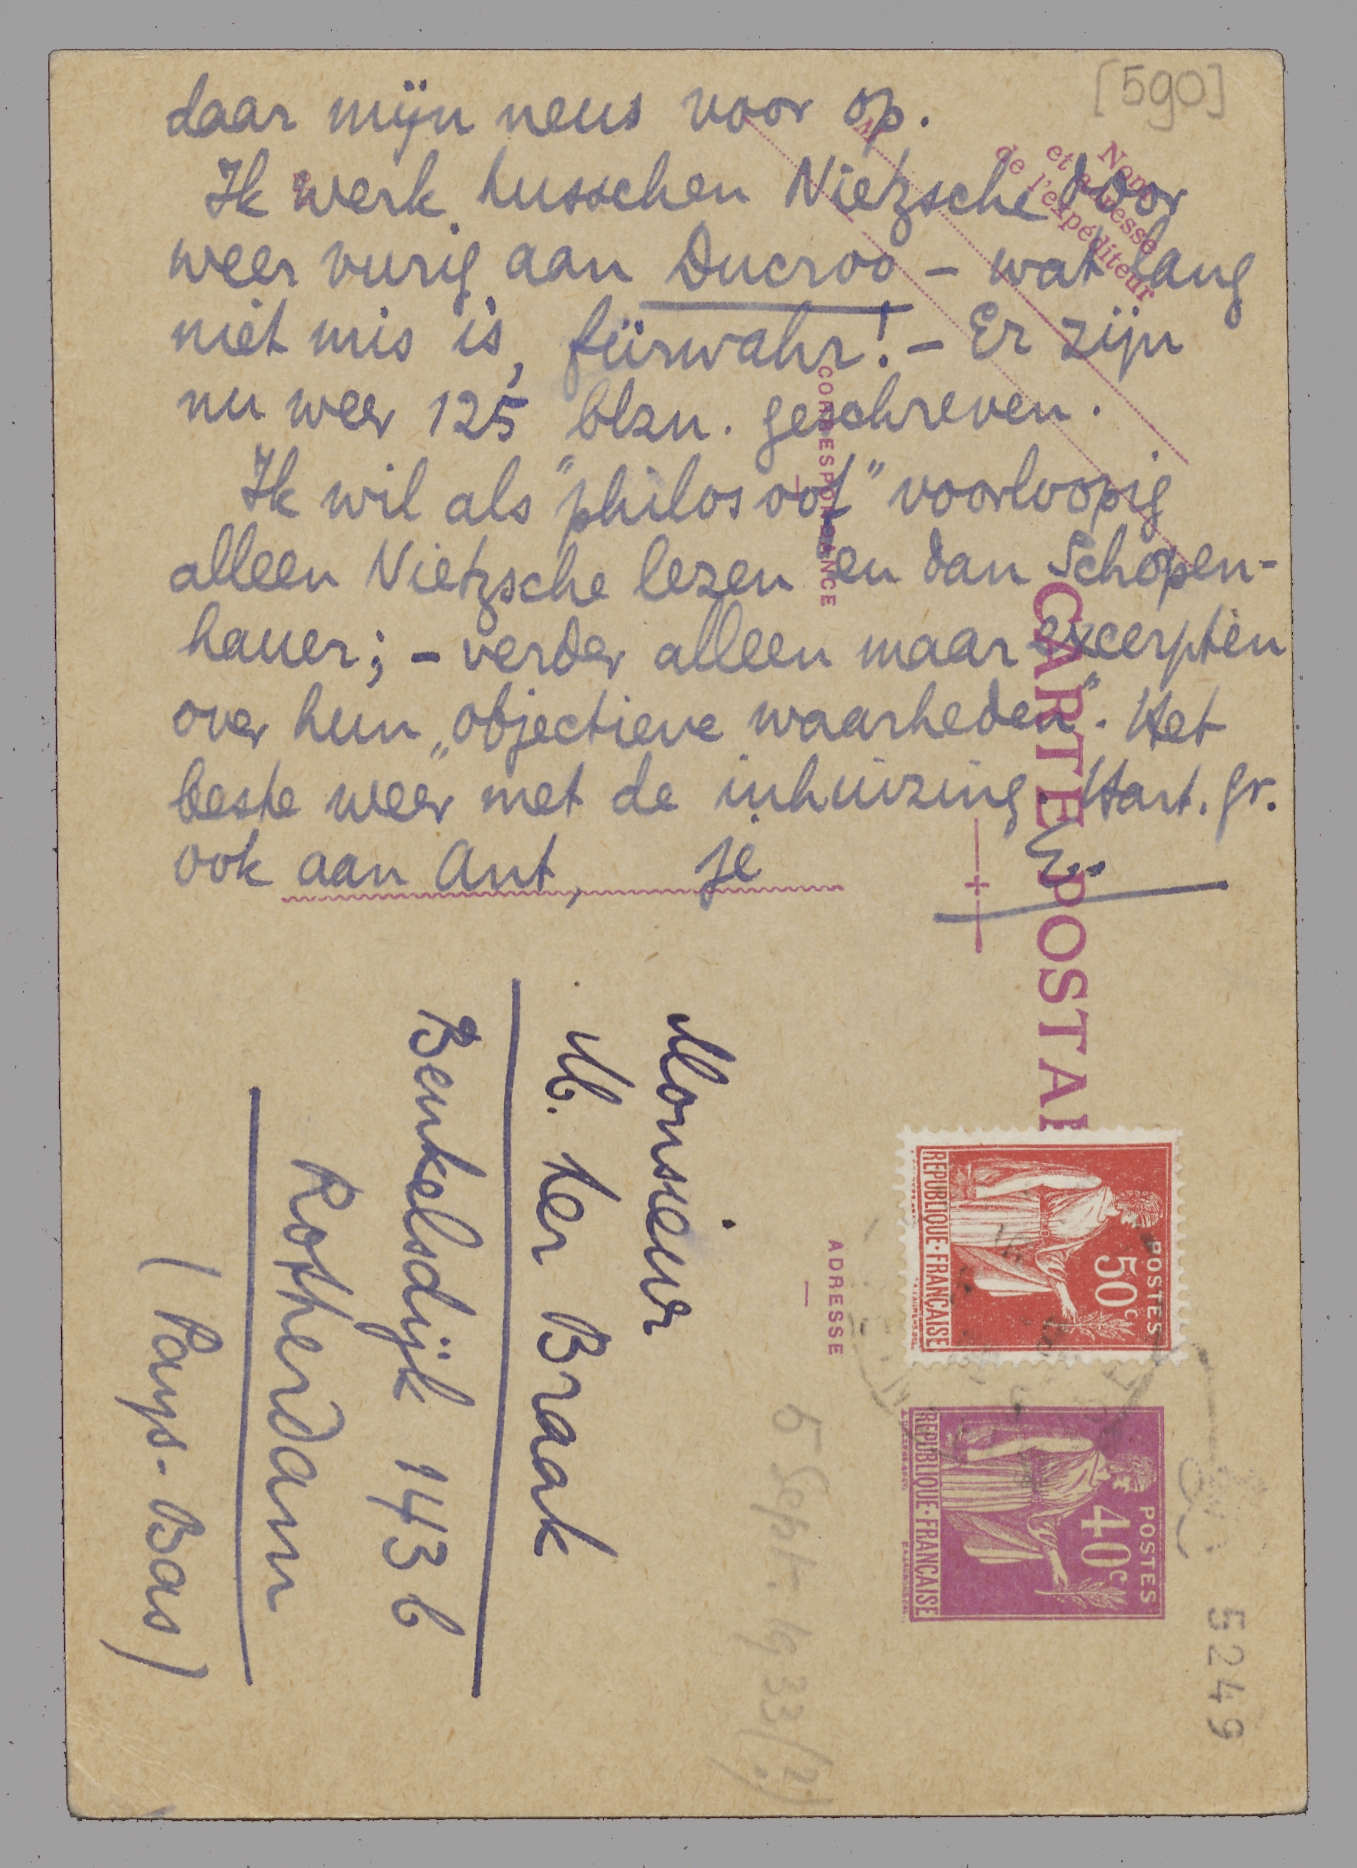 [590]
daar mijn neus voor op.
Ik werk tusschen Nietzsche door
weer vurig aan Ducroo – wat lang
niet mis is, fürwahr! – Er zijn
nu weer 125 blzn. geschreven.
Ik wil als "philosoof" voorloopig
alleen Nietzsche lezen en dan Schopen-
hauer; – verder alleen maar excerpten
over hun „objectieve waarheden". Het
beste weer met de inhuizing. Hart. gr.
ook aan Ant, je
E.
Nom
et adresse
de l'expéditeur
M
CORRESPONDANCE
CARTE POSTAL
ADRESSE
Monsieur
M. ter Braak
Beukelsdijk 143 b
Rotterdam
(Pays-Bas)
POSTES
50c
REPUBLIQUE·FRANÇAISE
POSTES
40c
REPUBLIQUE·FRANÇAISE
5 Sept. 1933 (?)
5249